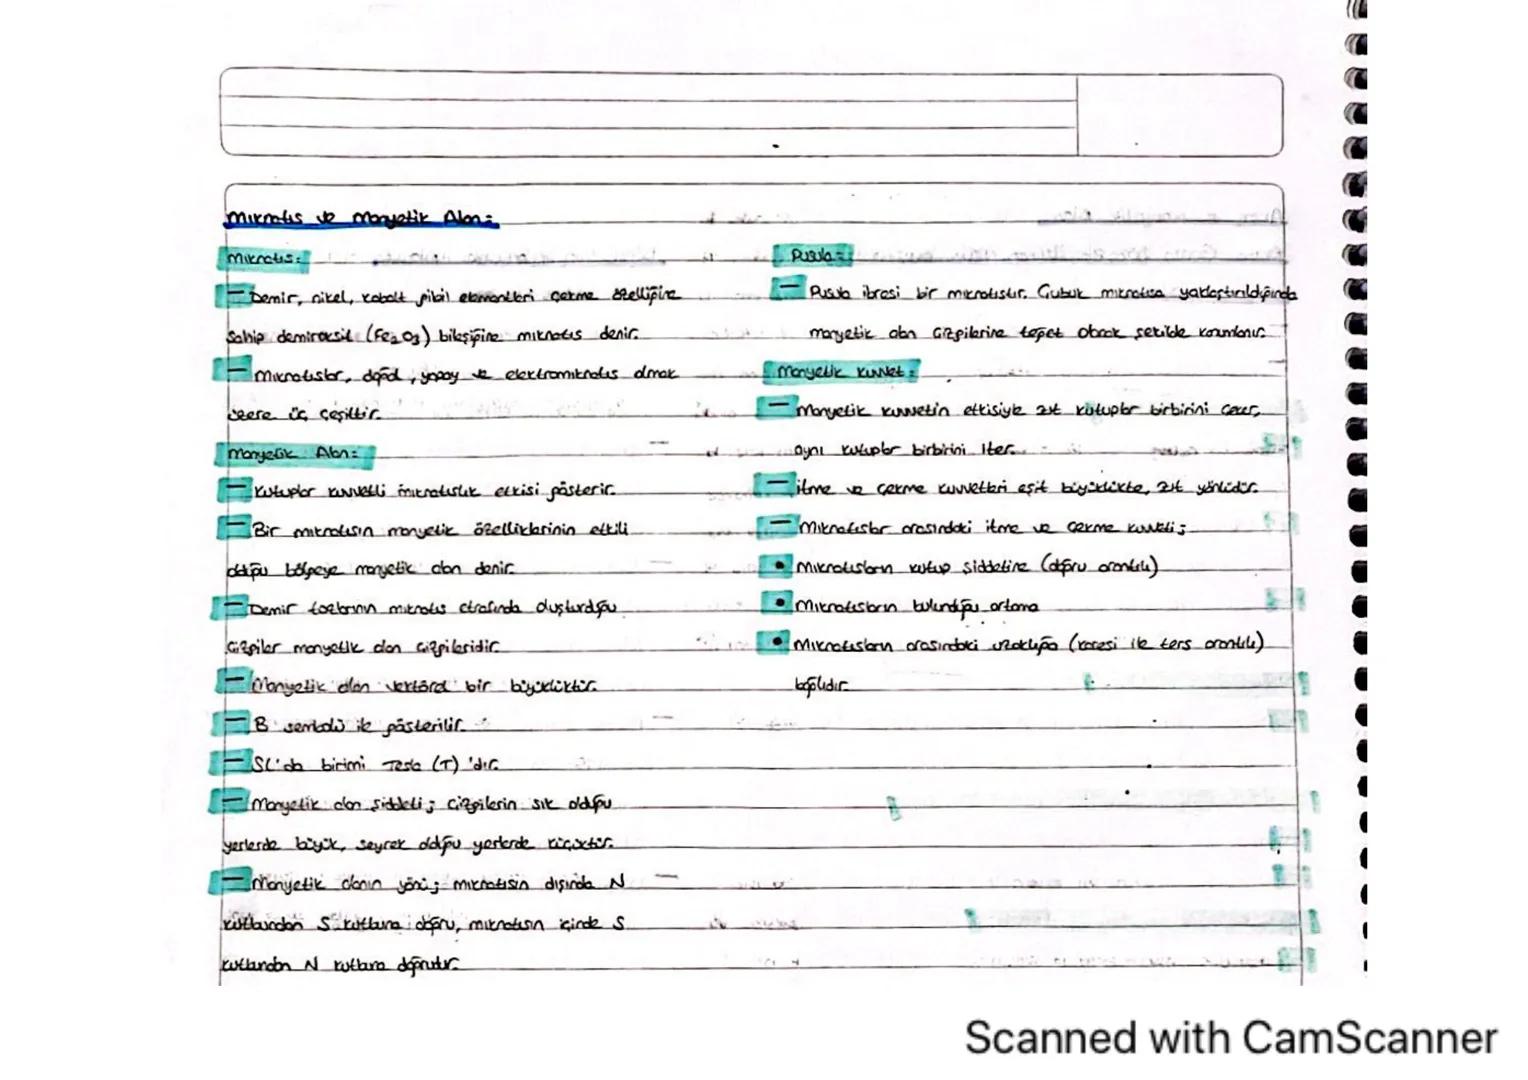 Mıknatıs ve Manyetik Alan:
Mıknatıs:
- Demir, nikel, kobalt gibi elementleri çekme özelliğine
sahip demiroksit (Fe₂O₃) bileşiğine mıknatıs denir.
- Mıknatıslar, doğal, yapay ve elektromıknatıs olmak
üzere üç çeşittir.
Manyetik Alan:
- Kutuplar kuvvetli mıknatıslık etkisi gösterir.
- Bir mıknatısın manyetik özelliklerinin etkili
olduğu bölgeye manyetik alan denir.
- Demir tozlarının mıknatıs etrafında oluşturduğu
çizgiler manyetik alan çizgileridir.
- Manyetik alan vektörel bir büyüklüktür.
- B sembolü ile gösterilir.
- SI'da birimi Tesla (T) 'dır.
- Manyetik alan şiddeti; çizgilerin sık olduğu
yerlerde büyük, seyrek olduğu yerlerde küçüktür.
- Manyetik alanın yönü; mıknatısın dışında N
kutbundan S kutbuna doğru, mıknatısın içinde S
kutbundan N kutbuna doğrudur.
Pusula:
- Pusula ibresi bir mıknatıstır. Çubuk mıknatısa yaklaştırıldığında
manyetik alan çizgilerine teğet olacak şekilde konumlanır.
Manyetik Kuvvet:
- Manyetik kuvvetin etkisiyle zıt kutuplar birbirini çeker,
aynı kutuplar birbirini iter.
- itme ve çekme kuvvetleri eşit büyüklükte, zıt yönlüdür.
- Mıknatıslar arasındaki itme ve çekme kuvveti;
• Mıknatısların kutup şiddetine (doğru orantılı)
• Mıknatısların bulunduğu ortama
• Mıknatısların arasındaki uzaklığa (karesi ile ters orantılı)
bağlıdır.
Scanned with CamScanner